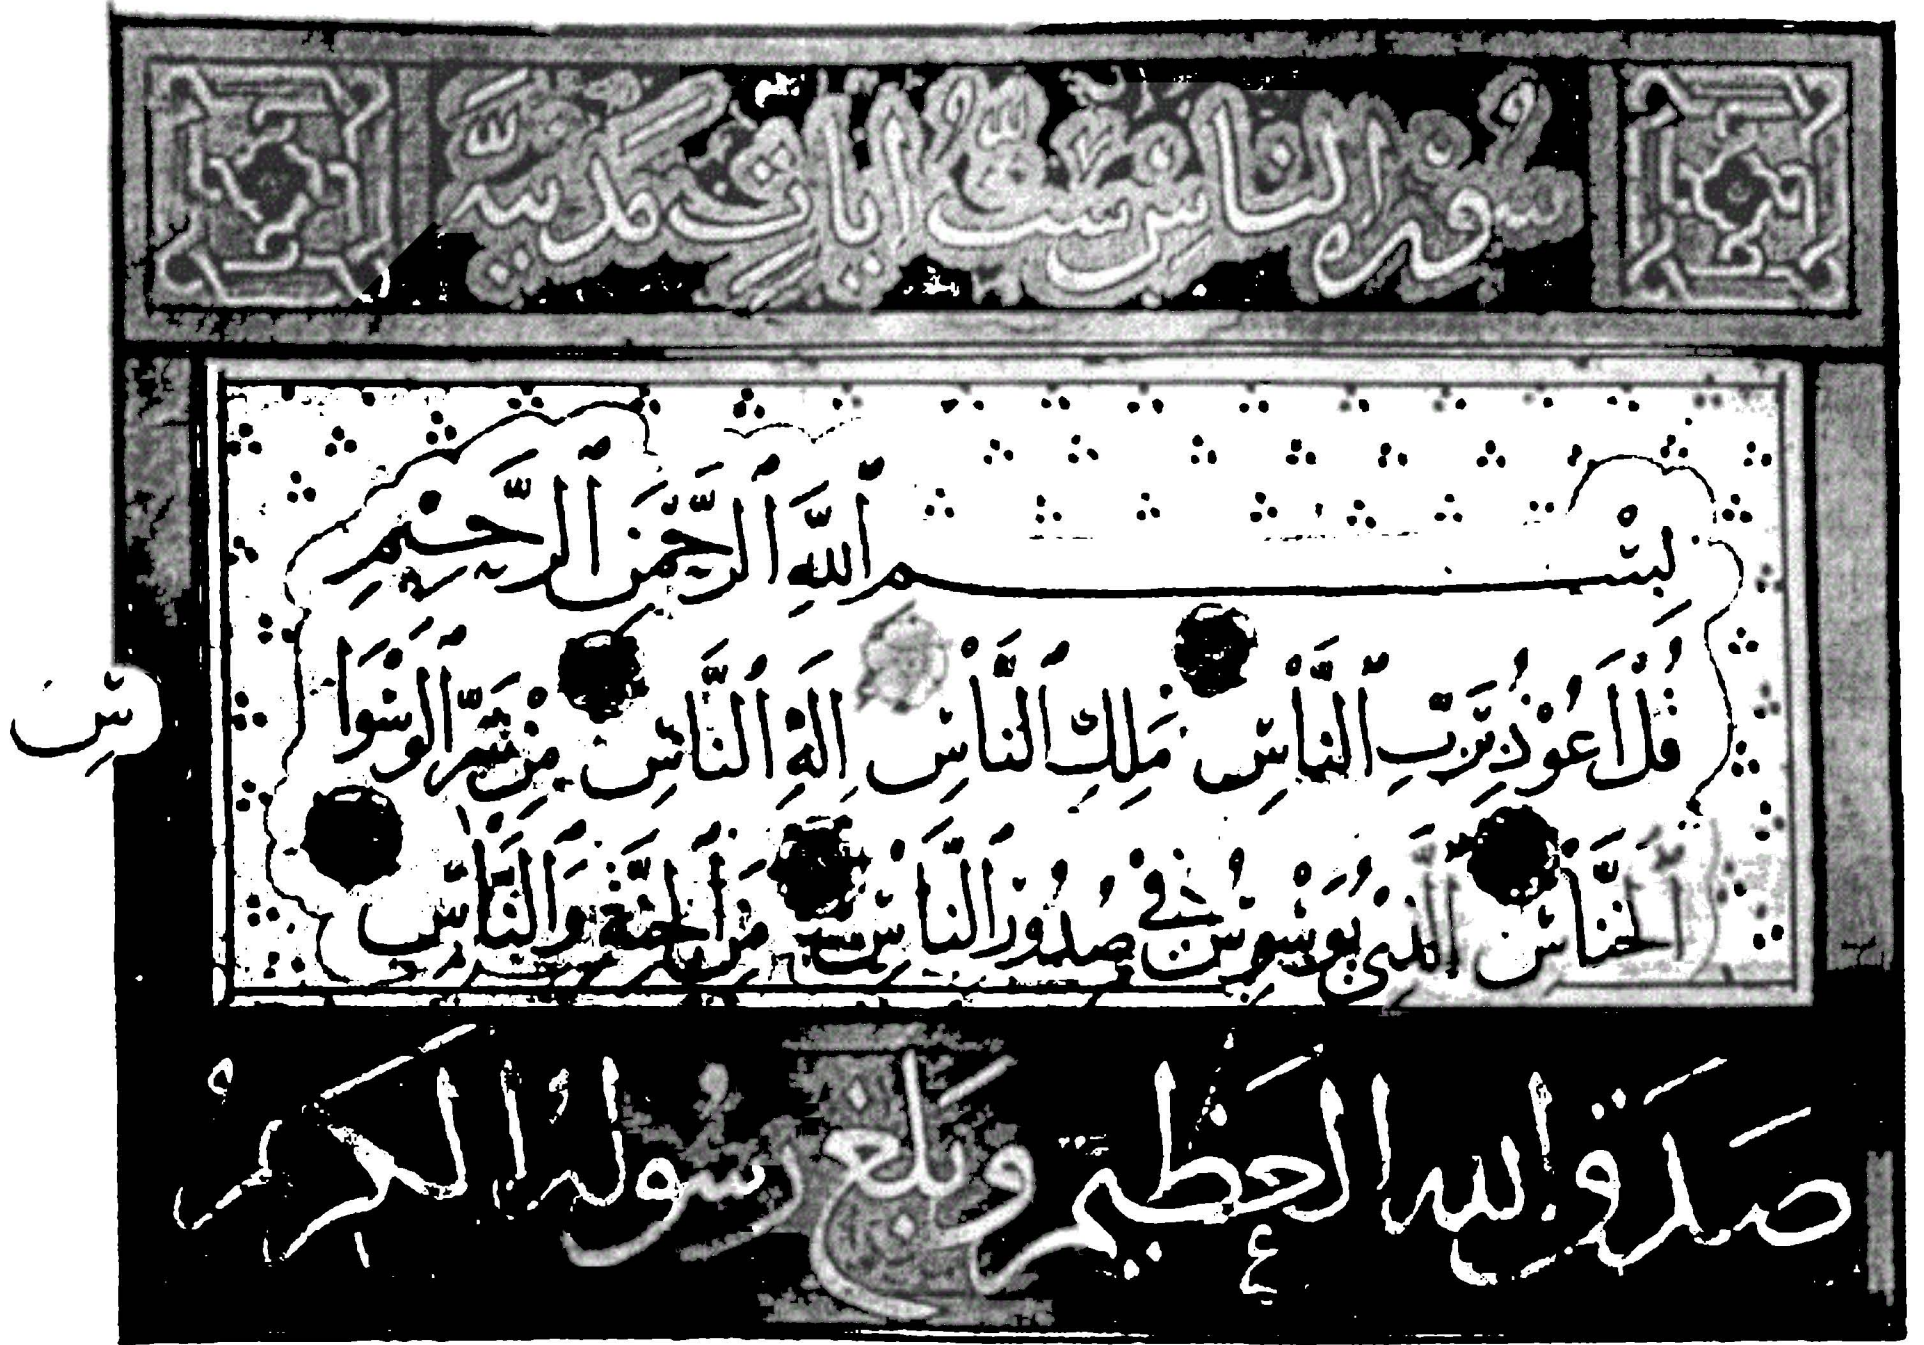 سورة الناس ست ايات مدنية
بِسْمِ ٱللَّهِ ٱلرَّحْمَٰنِ ٱلرَّحِيمِ
قُلْ أَعُوذُ بِرَبِّ ٱلنَّاسِ مَلِكِ ٱلنَّاسِ إِلَٰهِ ٱلنَّاسِ مِن شَرِّ ٱلْوَسْوَا
سِ
ٱلْخَنَّاسِ ٱلَّذِي يُوَسْوِسُ فِي صُدُورِ ٱلنَّاسِ مِنَ ٱلْجِنَّةِ وَٱلنَّاسِ
صَدَقَ الله العَظيم وَبَلَّغَ رَسُولُهُ الكَريمُ